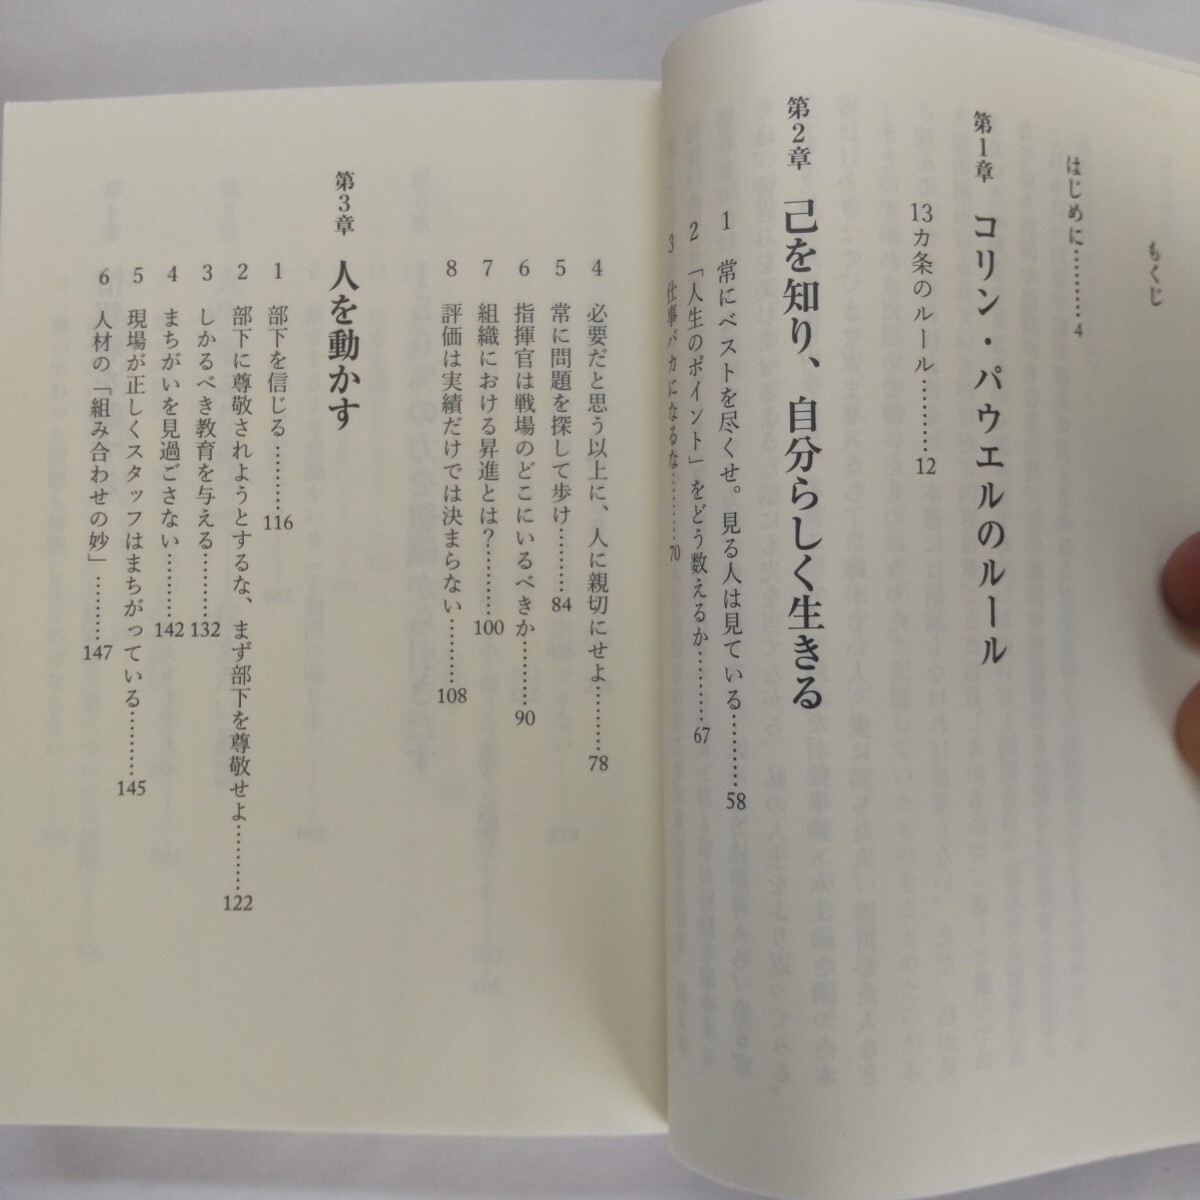 もくじ
はじめに………4
第1章 コリン・パウエルのルール
13カ条のルール………12
第2章 己を知り、自分らしく生きる
1 常にベストを尽くせ。見る人は見ている………58
2 「人生のポイント」をどう数えるか………67
3 仕事バカになるな………70
4 必要だと思う以上に、人に親切にせよ………78
5 常に問題を探して歩け………84
6 指揮官は戦場のどこにいるべきか………90
7 組織における昇進とは?………100
8 評価は実績だけでは決まらない………108
第3章 人を動かす
1 部下を信じる………116
2 部下に尊敬されようとするな、まず部下を尊敬せよ………122
3 しかるべき教育を与える………132
4 まちがいを見過ごさない………142
5 現場が正しくスタッフはまちがっている………145
6 人材の「組み合わせの妙」………147